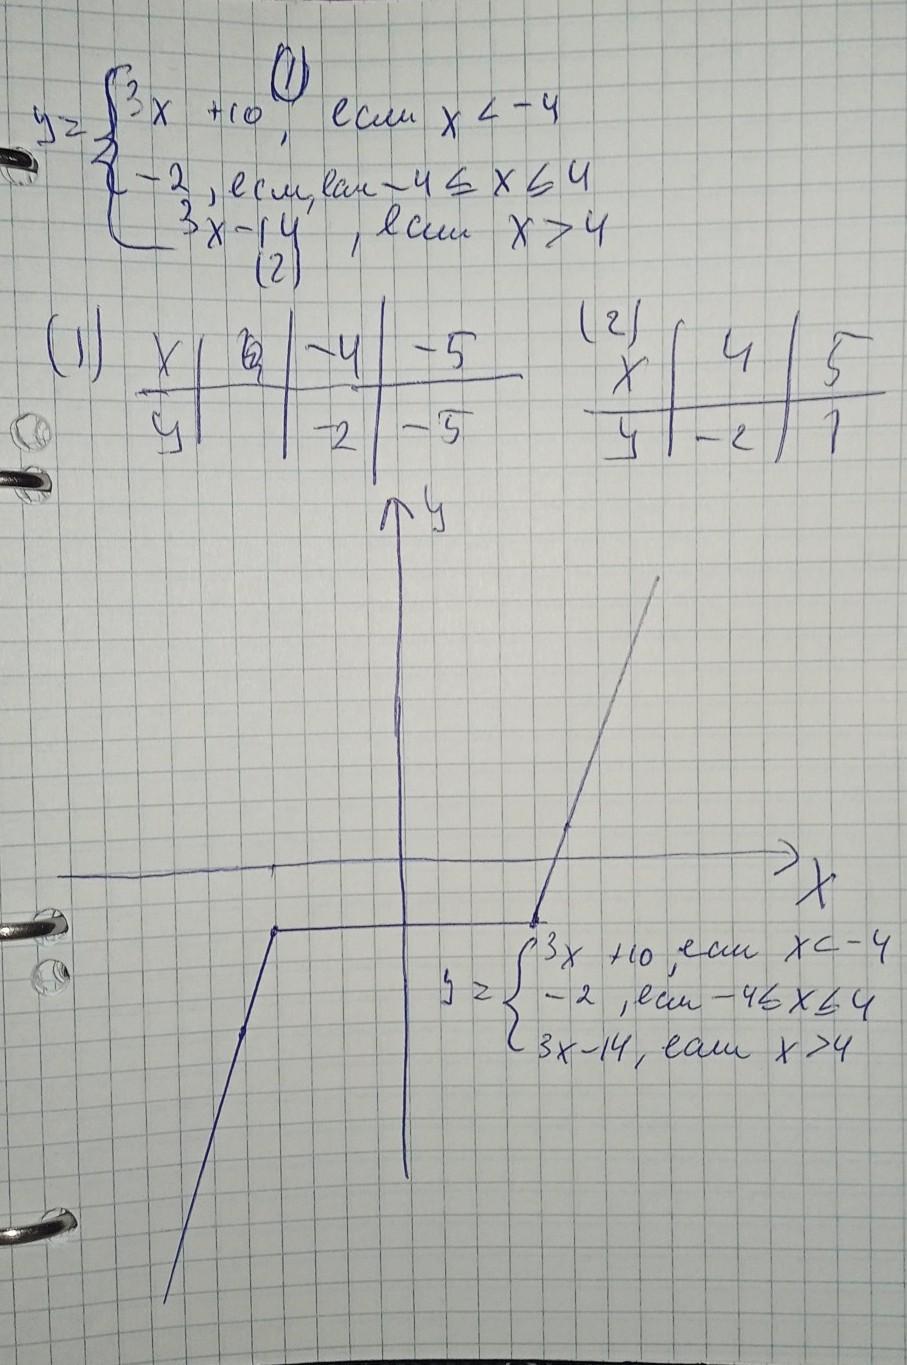 (1)
y = { 3x +10, если x < -4
-2, если, если -4 ≤ x ≤ 4
3x-14, если x > 4
(2)
(1) x | | -4 | -5
y | | -2 | -5
(2)
x | 4 | 5
y | -2 | 1
y
x
y = { 3x +10, если x < -4
-2, если -4 ≤ x ≤ 4
3x-14, если x > 4